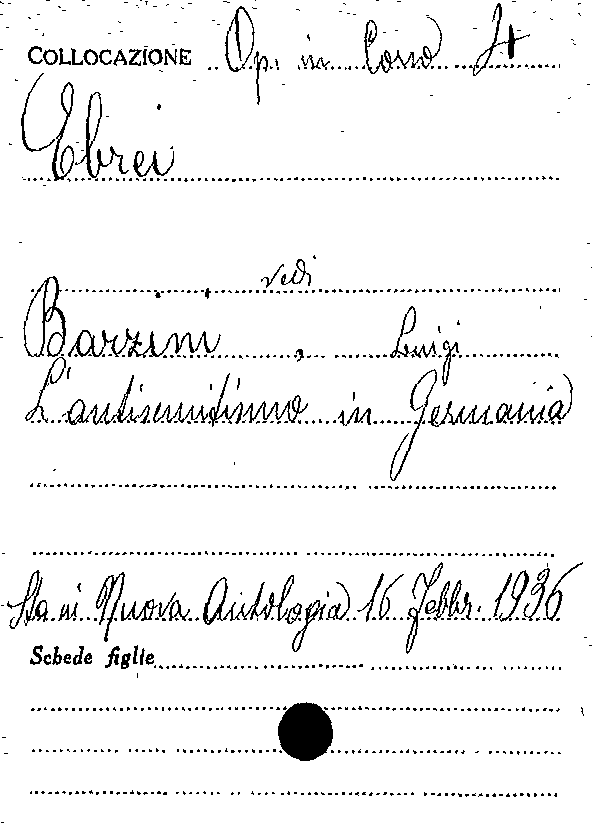 COLLOCAZIONE Op. in Corso
Ebrei
vedi
Barzini, Luigi
L'antisemitismo in Germania
Sta in Nuova Antologia 16 Febbr. 1936
Schede figlie